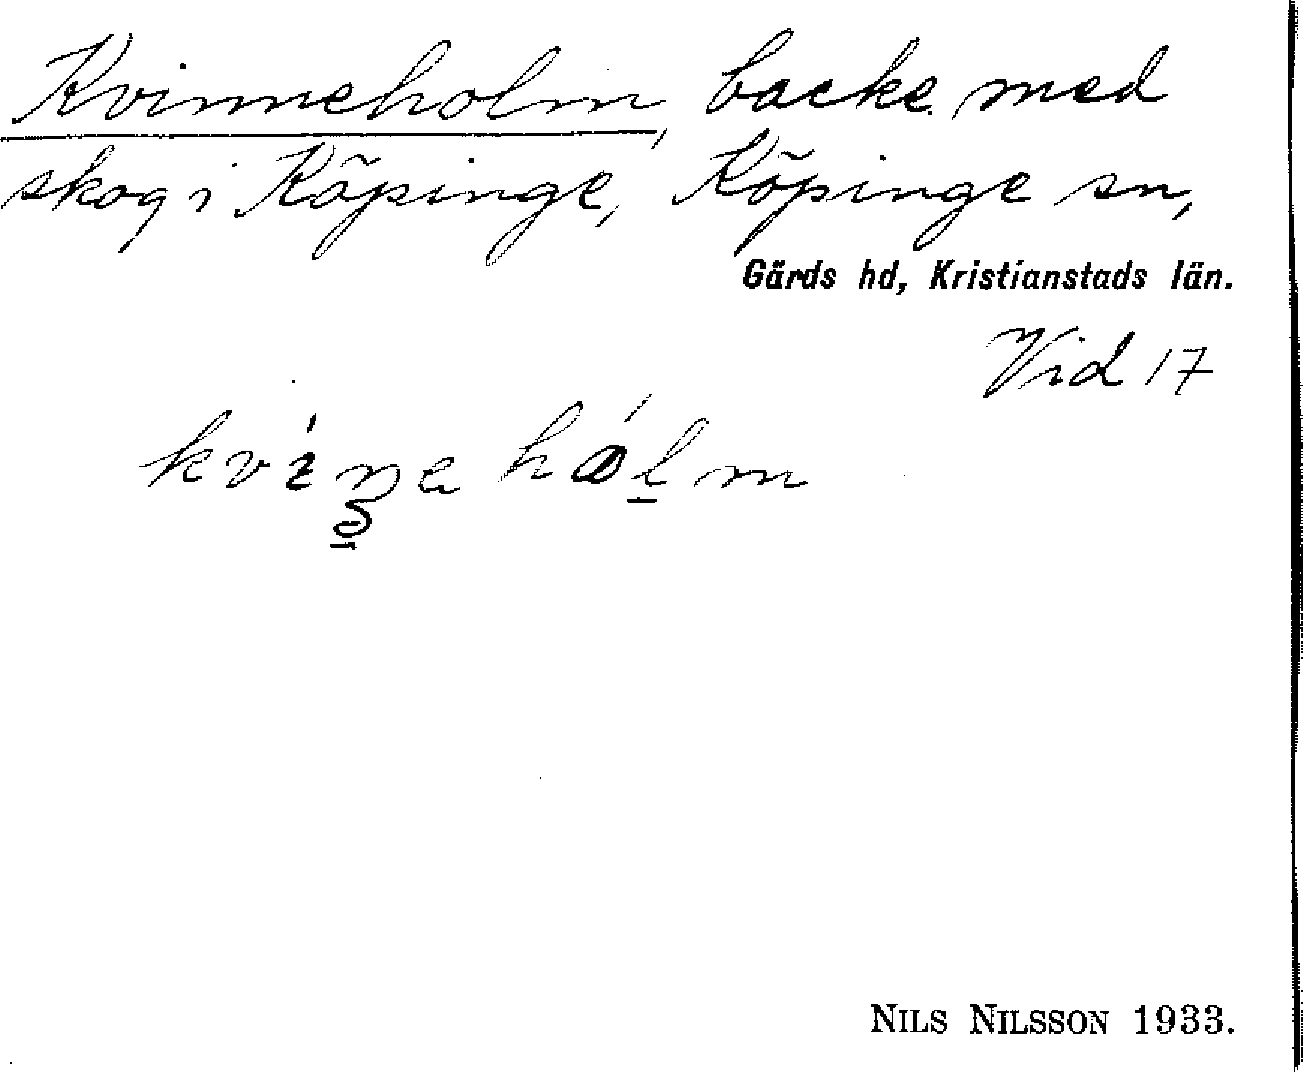 Kvinneholm, backe med
skog i Köpinge, Köpinge sn,
Gärds hd, Kristianstads län.
Vid 17
NILS NILSSON 1933.